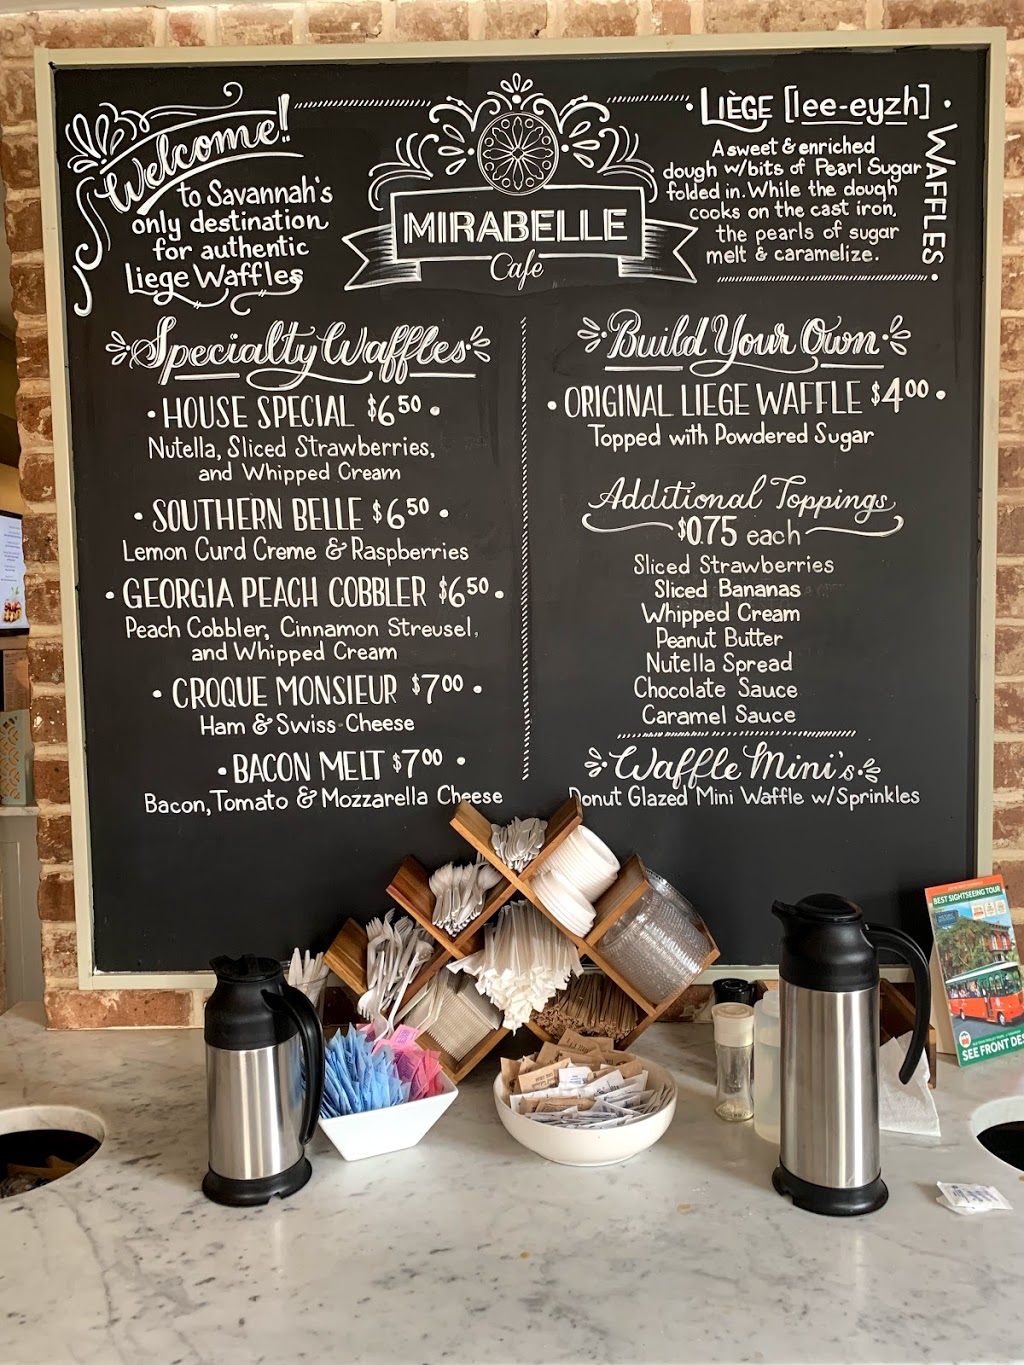 Welcome!
to Savannah's
only destination
for authentic
Liege Waffles
MIRABELLE
Cafe
LIÈGE [lee-eyzh]
WAFFLES
A sweet & enriched
dough w/bits of Pearl Sugar
folded in. While the dough
cooks on the cast iron,
the pearls of sugar
melt & caramelize.
Specialty Waffles
• HOUSE SPECIAL $6.50 •
Nutella, Sliced Strawberries,
and Whipped Cream
• SOUTHERN BELLE $6.50 •
Lemon Curd Creme & Raspberries
• GEORGIA PEACH COBBLER $6.50 •
Peach Cobbler, Cinnamon Streusel,
and Whipped Cream
• CROQUE MONSIEUR $7.00 •
Ham & Swiss Cheese
• BACON MELT $7.00 •
Bacon, Tomato & Mozzarella Cheese
Build Your Own
• ORIGINAL LIEGE WAFFLE $4.00 •
Topped with Powdered Sugar
Additional Toppings
$0.75 each
Sliced Strawberries
Sliced Bananas
Whipped Cream
Peanut Butter
Nutella Spread
Chocolate Sauce
Caramel Sauce
Waffle Mini's
Donut Glazed Mini Waffle w/Sprinkles
BEST SIGHTSEEING TOUR
SEE FRONT DES